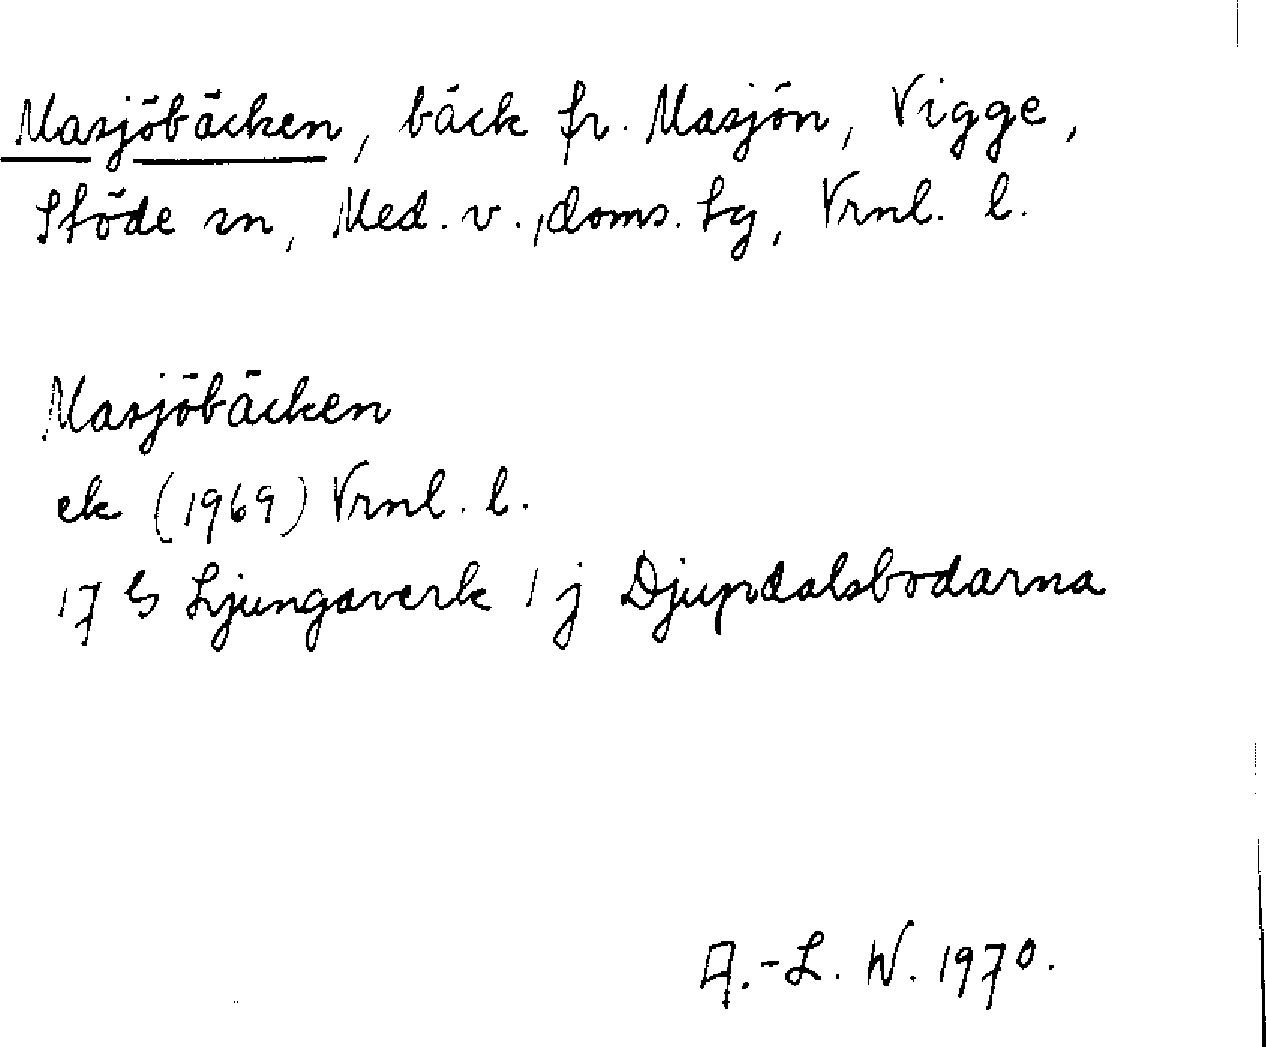 Masjöbäcken, bäck fr. Masjön, Vigge,
Stöde sn, Med. v., doms. tg, Vrnl. l.
Masjöbäcken
ek (1969) Vrnl. l.
17 G Ljungaverk 1 j Djupdalsbodarna
A.-L. W. 1970.